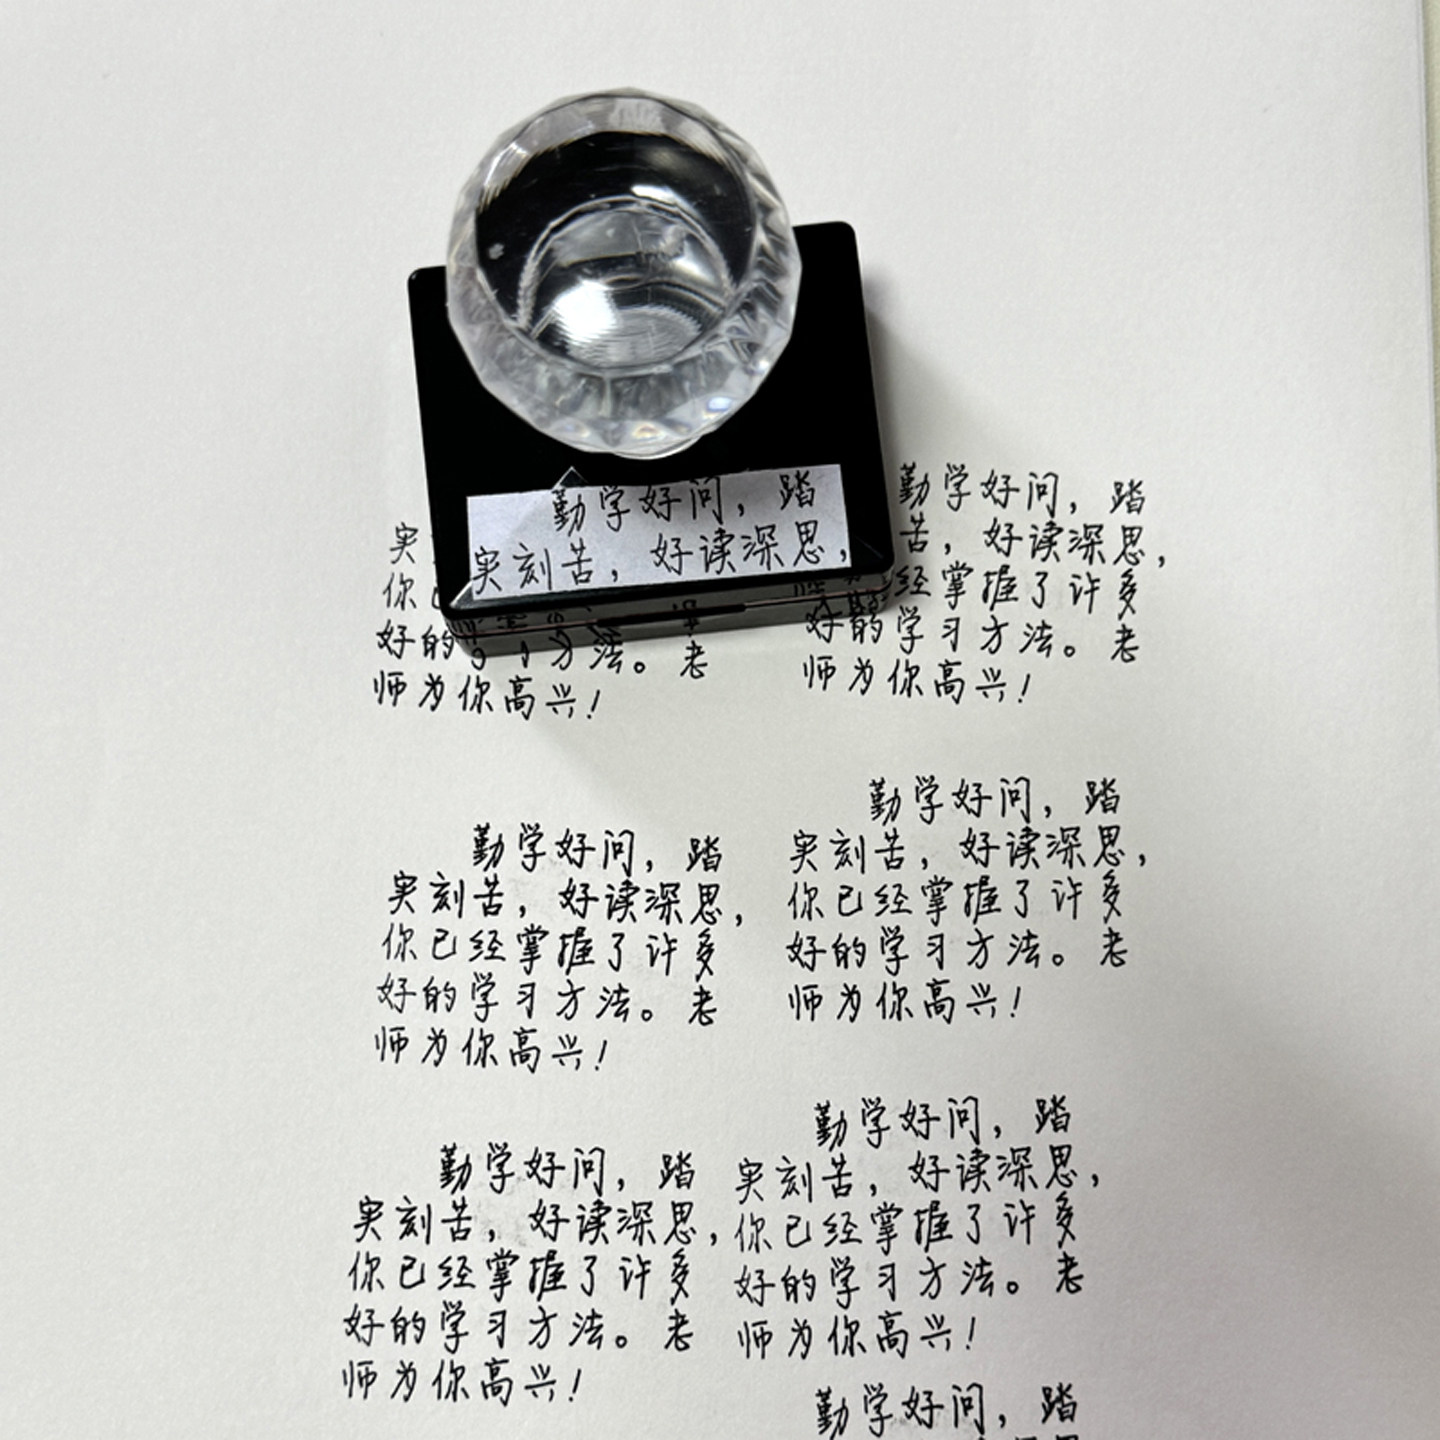 勤学好问，踏
实刻苦，好读深思，
实
你
好的
方法。老
师为你高兴！
勤学好问，踏
苦，好读深思，
经掌握了许多
好的学习方法。老
师为你高兴！
勤学好问，踏
实刻苦，好读深思，
你已经掌握了许多
好的学习方法。老
师为你高兴！
勤学好问，踏
实刻苦，好读深思，
你已经掌握了许多
好的学习方法。老
师为你高兴！
勤学好问，踏
实刻苦，好读深思，
你已经掌握了许多
好的学习方法。老
师为你高兴！
勤学好问，踏
实刻苦，好读深思，
你已经掌握了许多
好的学习方法。老
师为你高兴！
勤学好问，踏